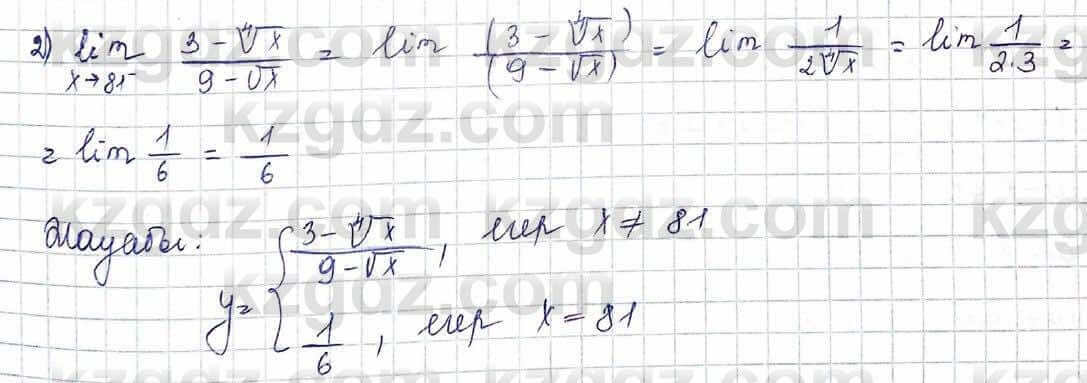 2) lim x→81 (3 - ∜x)/(9 - √x) = lim (3 - ∜x)/(9 - √x) = lim 1/(2∜x) = lim 1/(2·3) =
= lim 1/6 = 1/6
Жауабы: y = { (3 - ∜x)/(9 - √x), егер x ≠ 81
1/6, егер x = 81
kzgdz.com